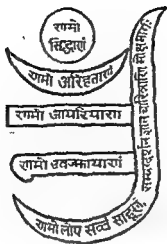 रामो
सिद्धारां
रामो अरिहंतारां
रामो आयरियारा
रामो उवज्झायारां
रामो लोए सव्व साहूरां
सम्यग्दर्शन ज्ञान चारित्राणि मोक्षमार्गः